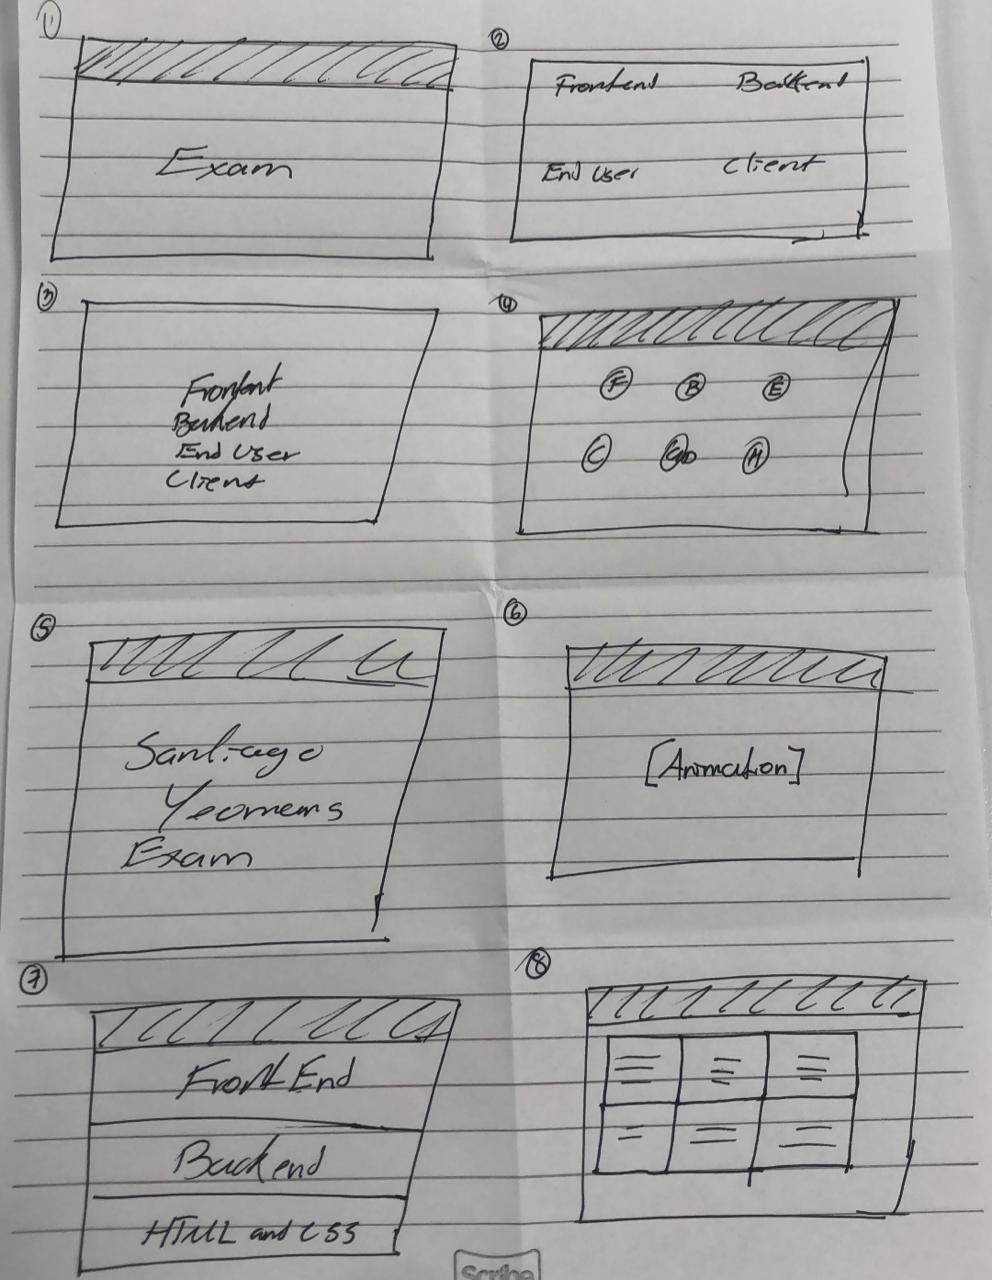 1
Exam
2
Frontend Backend
End User Client
3
Frontent
Backend
End User
Client
4
F B E
C H
5
Santiago
Yeomans
Exam
6
[Animation]
7
Front End
Backend
HTML and CSS
8
Scribe